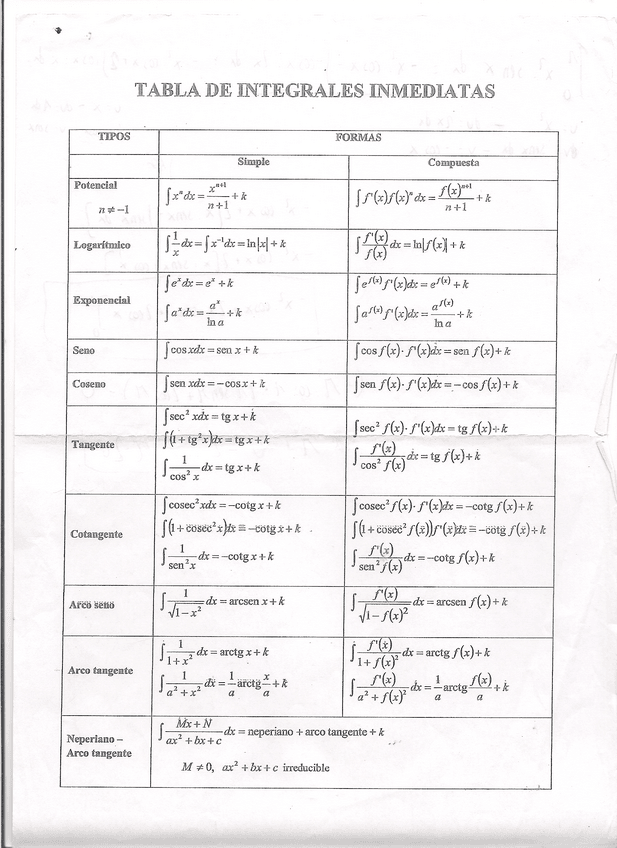 TABLA DE INTEGRALES INMEDIATAS
TIPOS FORMAS
Simple Compuesta
Potencial
n ≠ −1
∫xⁿdx = xⁿ⁺¹/(n+1) + k
∫f'(x)f(x)ⁿdx = f(x)ⁿ⁺¹/(n+1) + k
Logarítmico
∫1/x dx = ∫x⁻¹dx = ln|x| + k
∫f'(x)/f(x) dx = ln|f(x)| + k
Exponencial
∫eˣdx = eˣ + k
∫aˣdx = aˣ/ln a + k
∫e^f(x) f'(x)dx = e^f(x) + k
∫a^f(x) f'(x)dx = a^f(x)/ln a + k
Seno
∫cos xdx = sen x + k
∫cos f(x)· f'(x)dx = sen f(x) + k
Coseno
∫sen xdx = −cos x + k
∫sen f(x)· f'(x)dx = −cos f(x) + k
Tangente
∫sec² xdx = tg x + k
∫(1 + tg² x)dx = tg x + k
∫1/cos² x dx = tg x + k
∫sec² f(x)· f'(x)dx = tg f(x) + k
∫f'(x)/cos² f(x) dx = tg f(x) + k
Cotangente
∫cosec² xdx = −cotg x + k
∫(1 + cosec² x)dx = −cotg x + k
∫1/sen² x dx = −cotg x + k
∫cosec² f(x)· f'(x)dx = −cotg f(x) + k
∫(1 + cosec² f(x))f'(x)dx = −cotg f(x) + k
∫f'(x)/sen² f(x) dx = −cotg f(x) + k
Arco seno
∫1/√(1−x²) dx = arcsen x + k
∫f'(x)/√(1−f(x)²) dx = arcsen f(x) + k
Arco tangente
∫1/(1+x²) dx = arctg x + k
∫1/(a²+x²) dx = 1/a arctg x/a + k
∫f'(x)/(1+f(x)²) dx = arctg f(x) + k
∫f'(x)/(a²+f(x)²) dx = 1/a arctg f(x)/a + k
Neperiano –
Arco tangente
∫(Mx+N)/(ax²+bx+c) dx = neperiano + arco tangente + k
M ≠ 0, ax² + bx + c irreducible